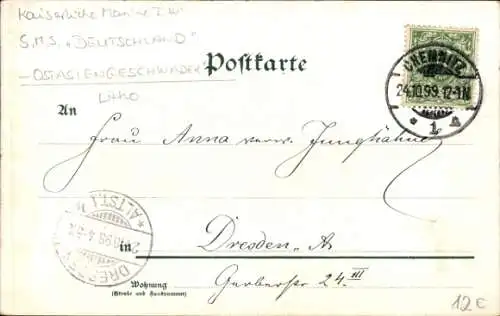 Kaiserliche Marine I. W.
S.M.S. „DEUTSCHLAND"
-OSTASIENGESCHWADER-
Litho
Postkarte
CHEMNITZ
24.10.99. 12-1N
* 1. A
An
Frau Anna verw. Junghähnel
*ALTST.1
10 99 4-5
DRES
in Dresden-A.
Wohnung
(Straße und Hausnummer)
Gerberstr 24.III
12€